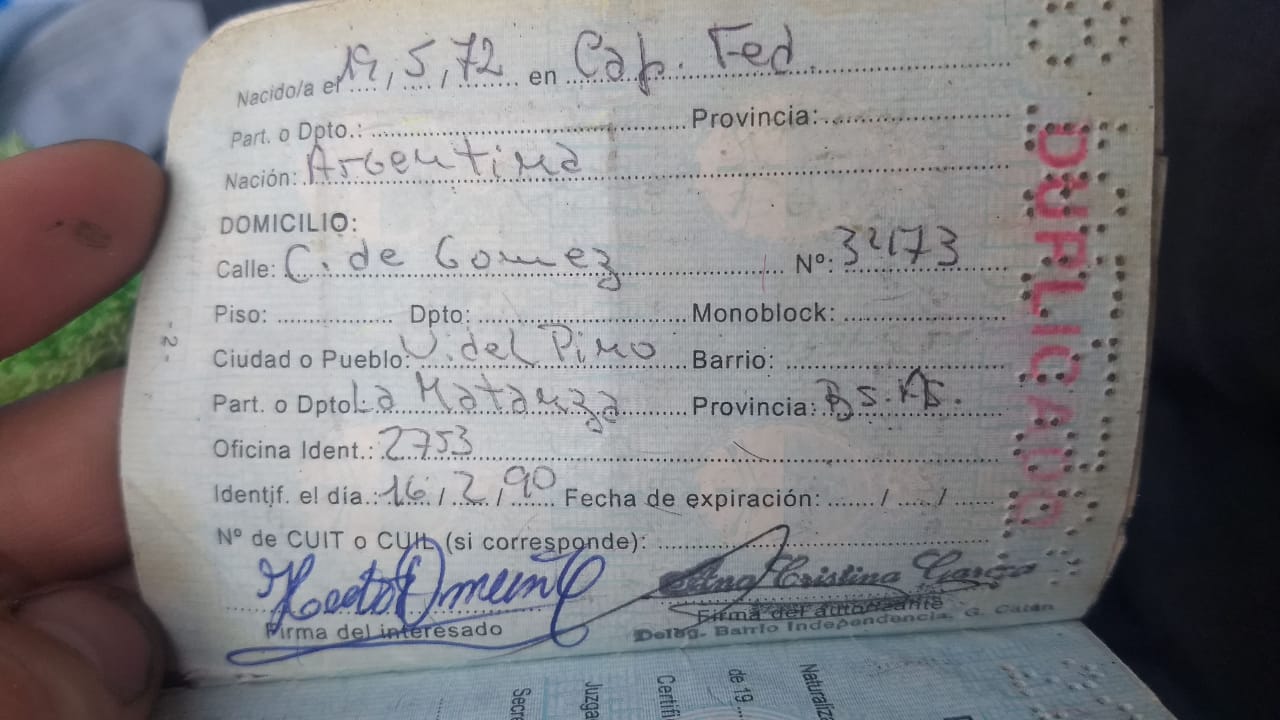 Nacido/a el 19 / 5 / 72 en Cap. Fed.
Part. o Dpto.: Provincia:
Nación: Argentina
DOMICILIO:
Calle: C. de Gomez Nº: 3473
Piso: Dpto: Monoblock:
Ciudad o Pueblo: V. del Pino Barrio:
Part. o Dpto La Matanza Provincia: Bs. As.
Oficina Ident.: 2753
Identif. el día.: 16 / 2 / 90 Fecha de expiración: / /
Nº de CUIT o CUIL (si corresponde):
Cristina Garcia
Firma del interesado Firma del autorizante
Deleg. Barrio Independencia. G. Catán
- 2 -
DUPLICADO
Secre
Juzga
Certifi
de 19
Naturaliza